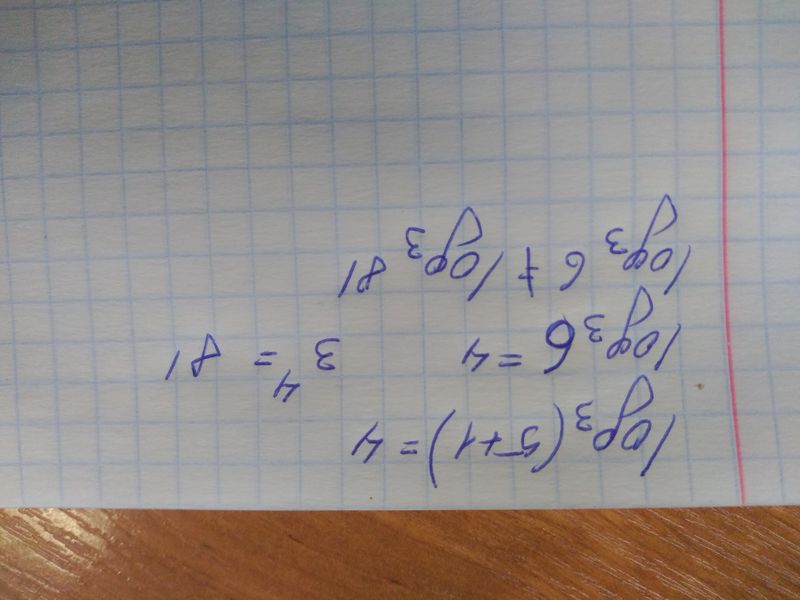 log₃(5+1)=4
log₃6=4 3⁴=81
log₃6≠log₃81